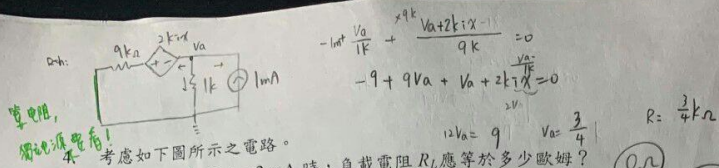 Rth:
9kΩ
2kix
Va
1k
1mA
-1m+ Va/1k + Va+2kix-1/9k =0
×9k
-9 + 9Va + Va + 2kix=0
Va/1k
2V
12Va = 9
Va= 3/4
R= 3/4 kΩ
算電阻,
考慮如下圖所示之電路。
負載電阻 RL應等於多少歐姆?